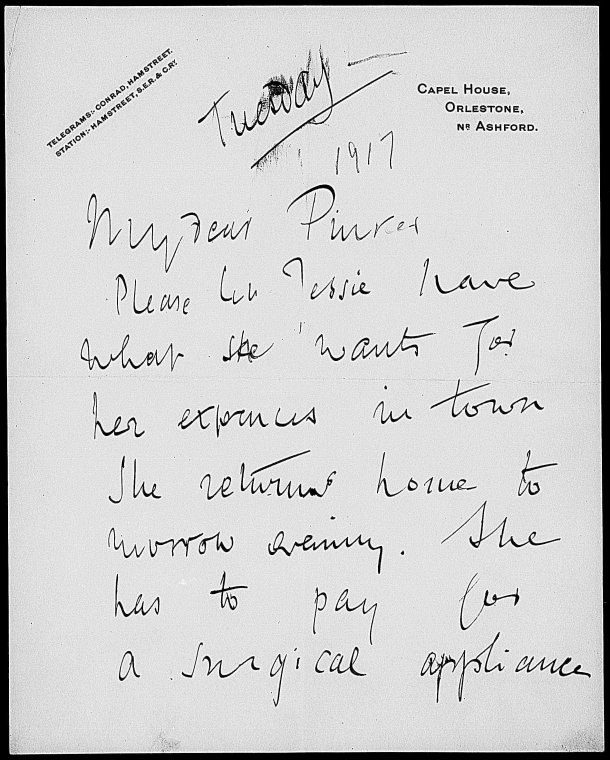 TELEGRAMS:- CONRAD, HAMSTREET.
STATION:- HAMSTREET, S.E.R. & C.RY.
CAPEL HOUSE,
ORLESTONE,
NR ASHFORD.
Tuesday
1917
My dear Pinker
Please let Jessie have
what she wants for
her expenses in town
She returns home to
morrow evening. She
has to pay for
a surgical appliance